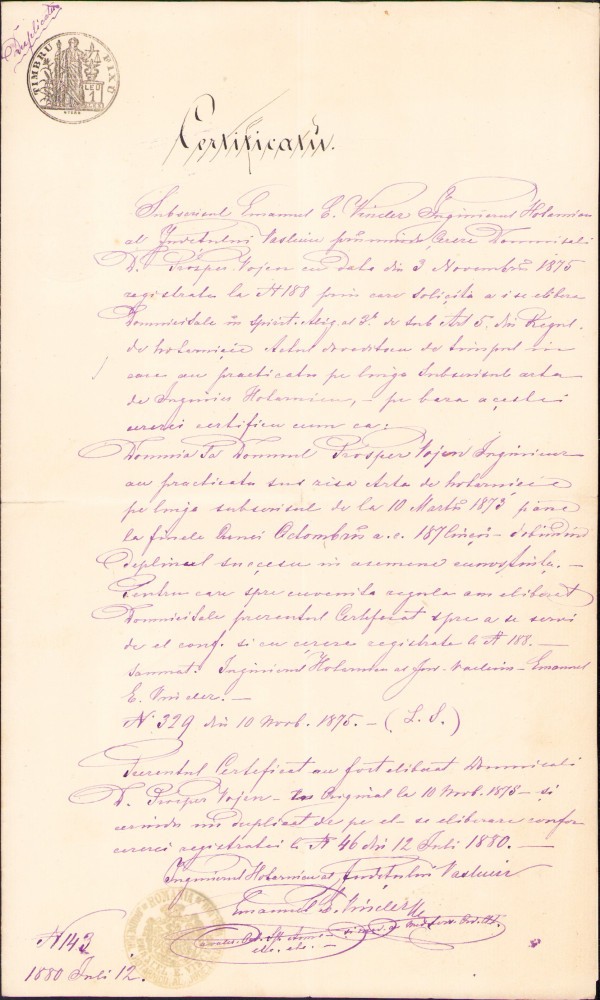 Duplicatu
TIMBRU FIXU
LEU
1
Certificatŭ.
Subscrisul Emanuel E. Vinder Inginerul Hotarnicu
al Judetului Vasluiu priimindu cerere Domnitali
D. Prosper Vojen cu data din 3 Novembrŭ 1875
registrata la N 188 prin care solicita a i se elibera
Domnieitale in spirit. Alig. al 2. de sub Art 5. din Regul.
de hotarnicie Actul doveditoru de timpul in
care au practicatu pe linga Subscrisul arta
de Inginer Hotarnicu, - pe baza acestei
cereri certificu cum ca:
Domnia Sa Domnul Prosper Vojen Inginer
au practicatu sus zisa Arta de hotarnicie
pe linga subscrisul de la 10 Martŭ 1873 pane
la finele lunei Octombrŭ a. c. 187 cinci - dobindind
deplinul succesu in asemene cunostinte. -
Pentru care spre cuvenita regula am eliberat
Domnieitale prezentul Certificat spre a se servi
de el conf. si cu cererea registrata la N 188. -
Semnat: Inginerul Hotarnicu al Jud. Vasluiu - Emanuel
E. Vinder. -
N. 329 din 10 Novb. 1875. - (L. S.)
Prezentul Certificat au fost eliberat Domnieitali
D. Prosper Vojen - in Original la 10 Noвb. 1875 - si
cerindu un duplicat de pe el se eliberaze confor
cererei registratei la N 46 din 12 Iuli 1880. -
Inginerul Hotarnicu al Judetului Vasluiu
Emanuel E. Vinder
etc. etc. -
ROMANIA
N 143
1880 Iuli 12.